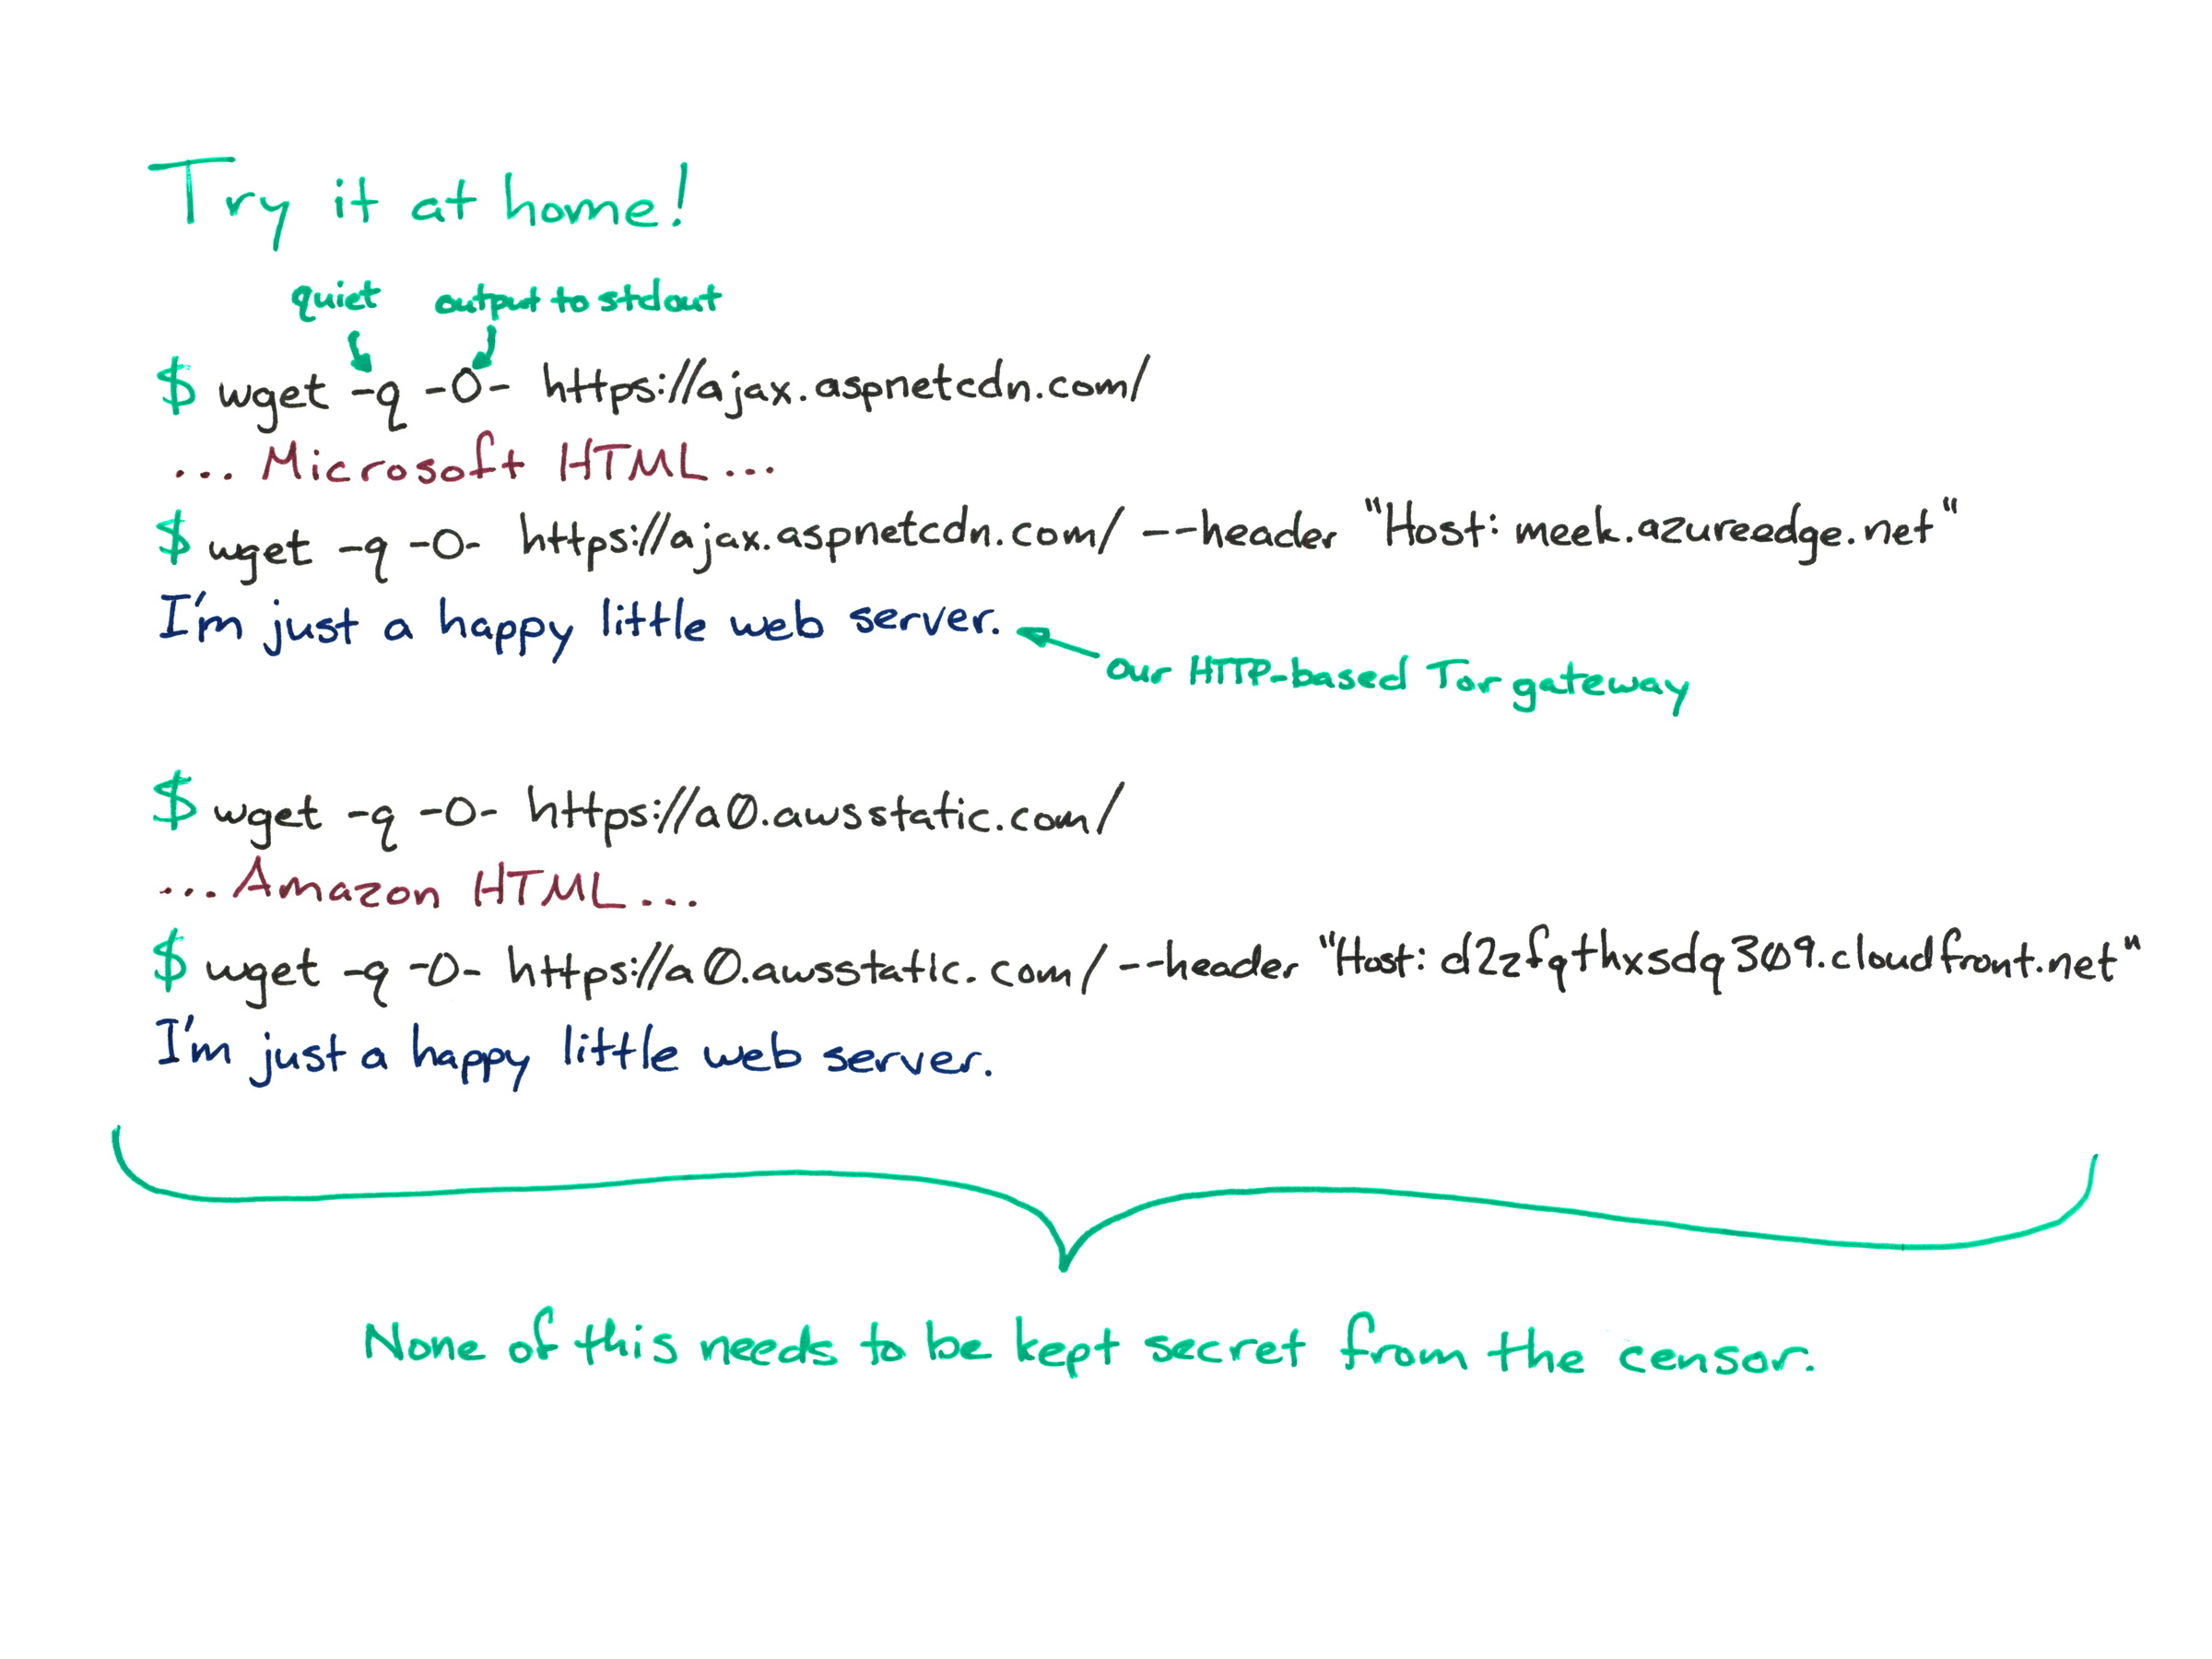 Try it at home!
quiet output to stdout
$ wget -q -O- https://ajax.aspnetcdn.com/
... Microsoft HTML...
$ wget -q -O- https://ajax.aspnetcdn.com/ --header "Host: meek.azureedge.net"
I'm just a happy little web server.
our HTTP-based Tor gateway
$ wget -q -O- https://a0.awsstatic.com/
...Amazon HTML...
$ wget -q -O- https://a0.awsstatic.com/ --header "Host: d2zfqthxsdq309.cloudfront.net"
I'm just a happy little web server.
None of this needs to be kept secret from the censor.